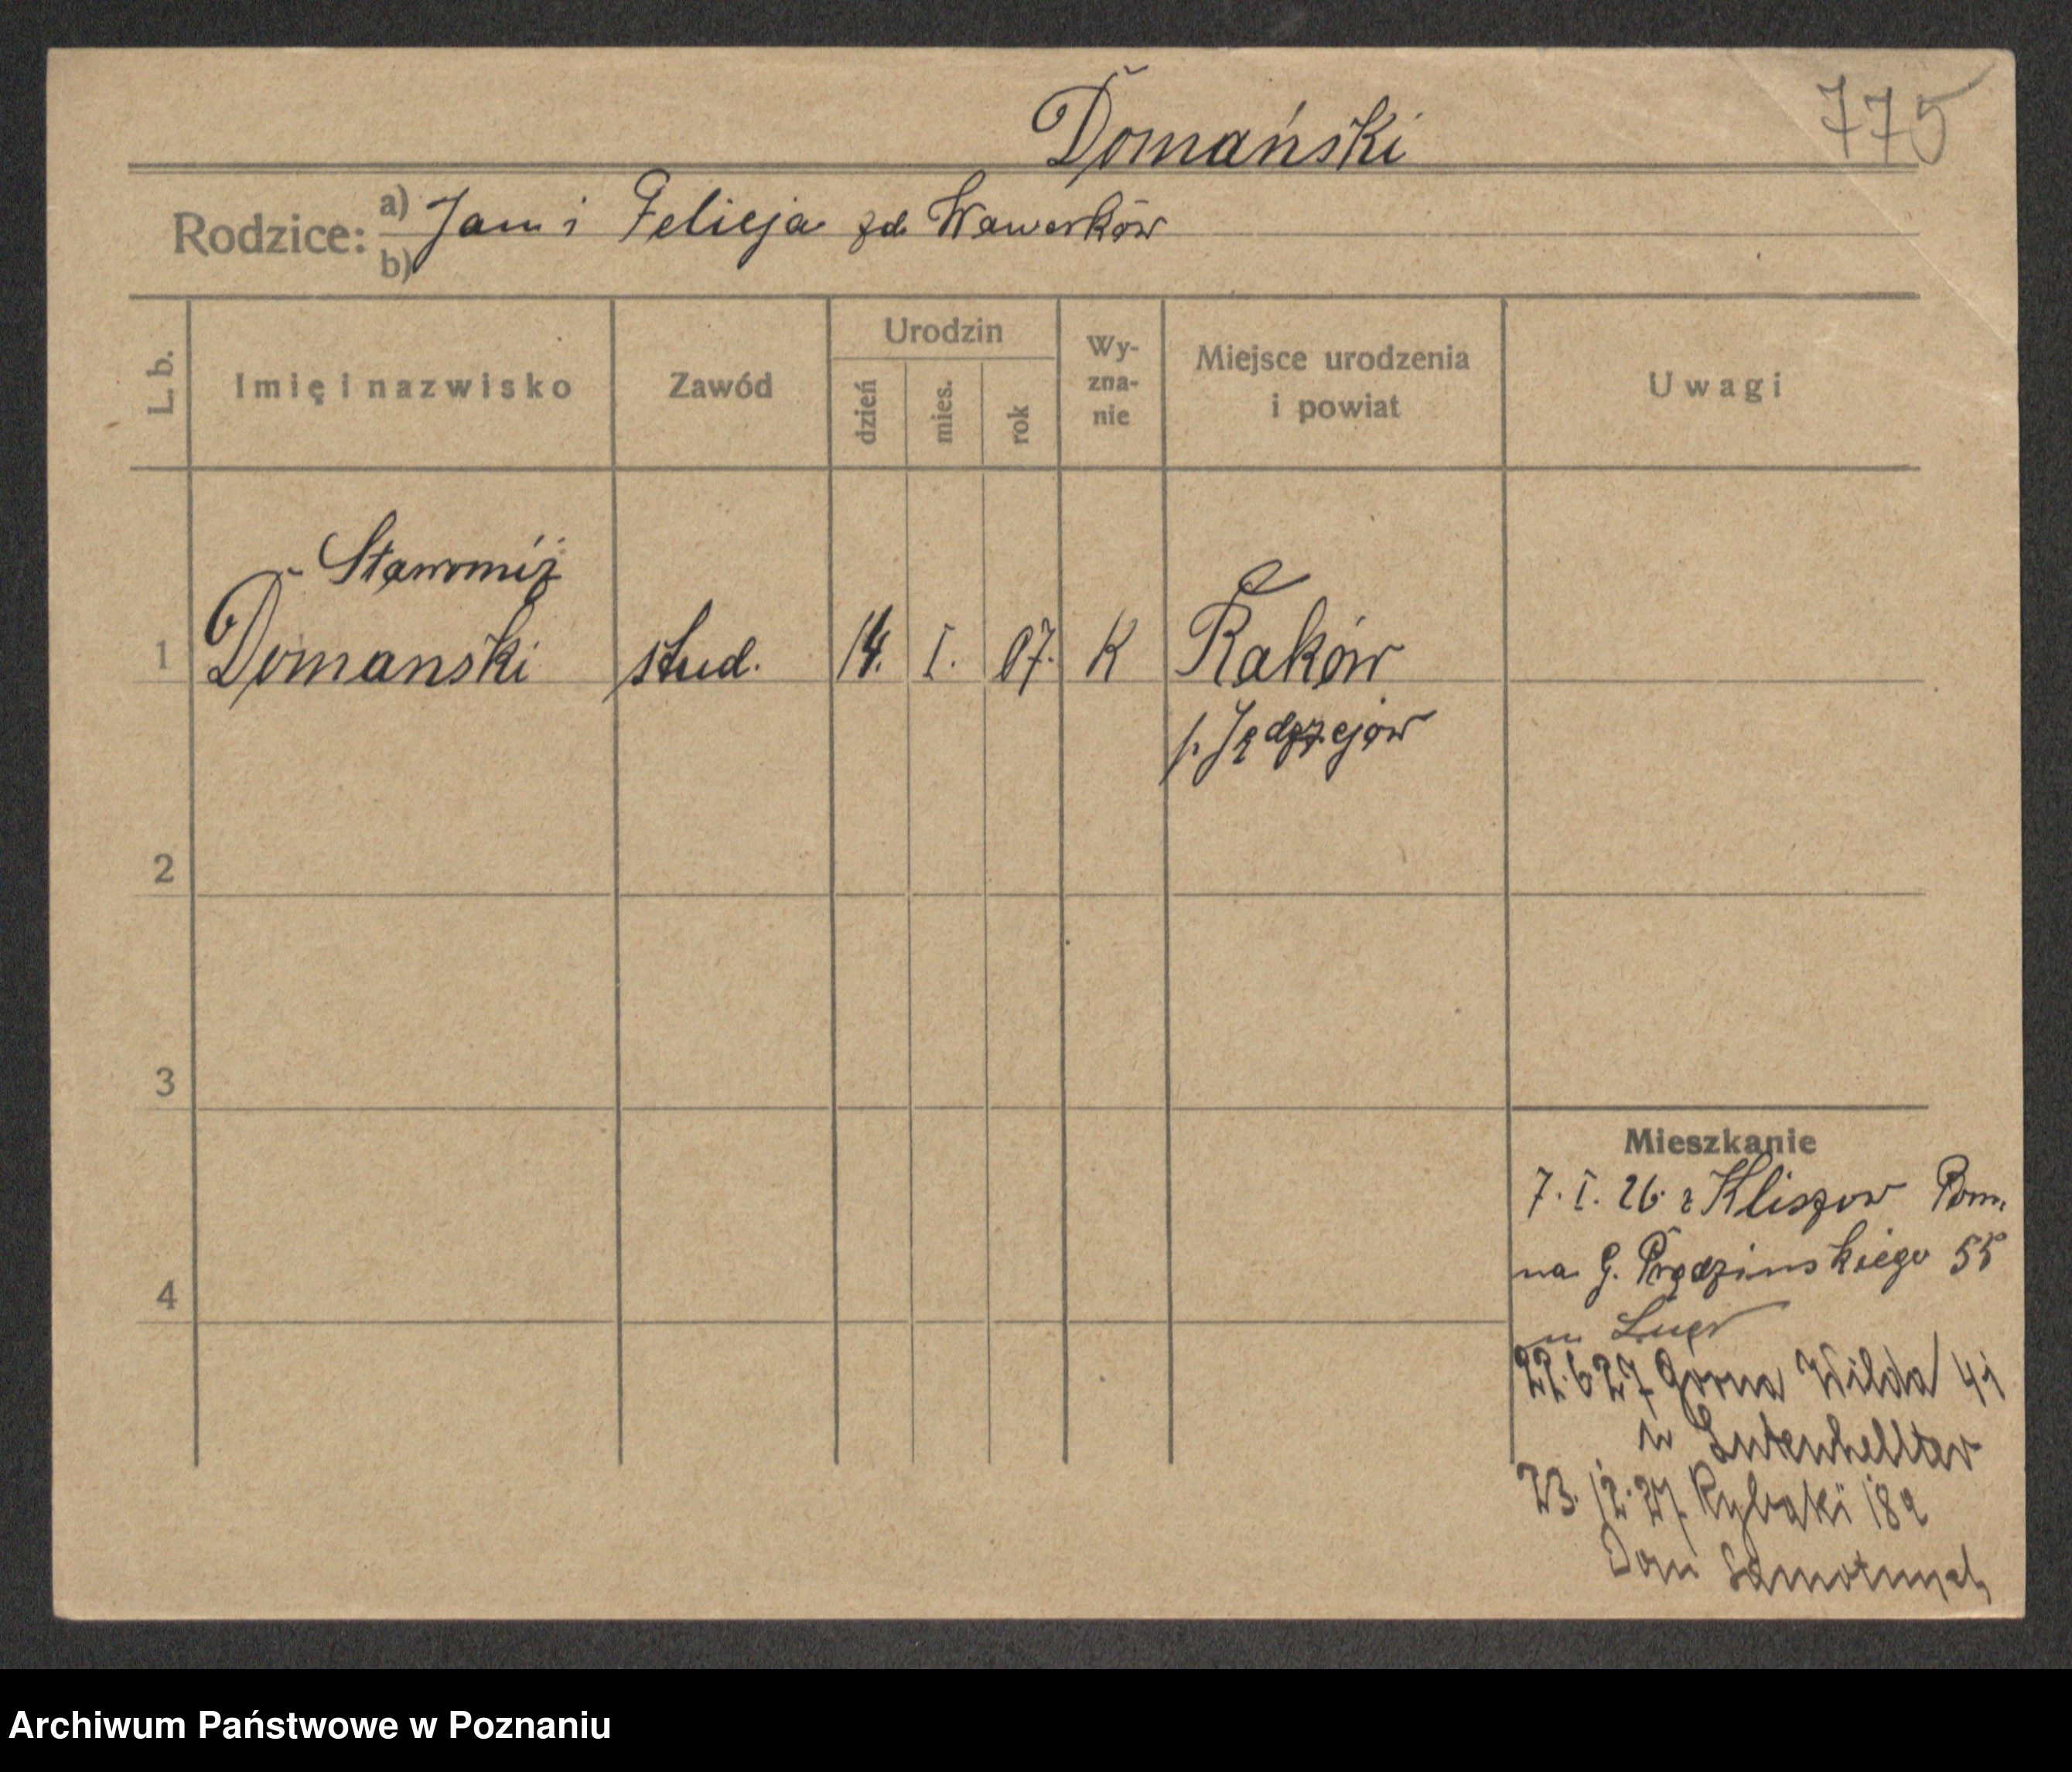 Domański
775
Rodzice: a) Jan i Felicja zd. Wawerków
b)
L. b.
Imię i nazwisko
Zawód
Urodzin
dzień
mies.
rok
Wy-
zna-
nie
Miejsce urodzenia
i powiat
Uwagi
Sławomir
1 Domanski stud. 14. I. 07. K Raków
p. Jędrzejow
2
3
4
Mieszkanie
7. I. 26. z Kliszow Pom.
na G. Prądzinskiego 55
u
22.6 27 Gorna Wilda 41
u
23. 12. 27 Rybaki
Dom Samotnych
Archiwum Państwowe w Poznaniu